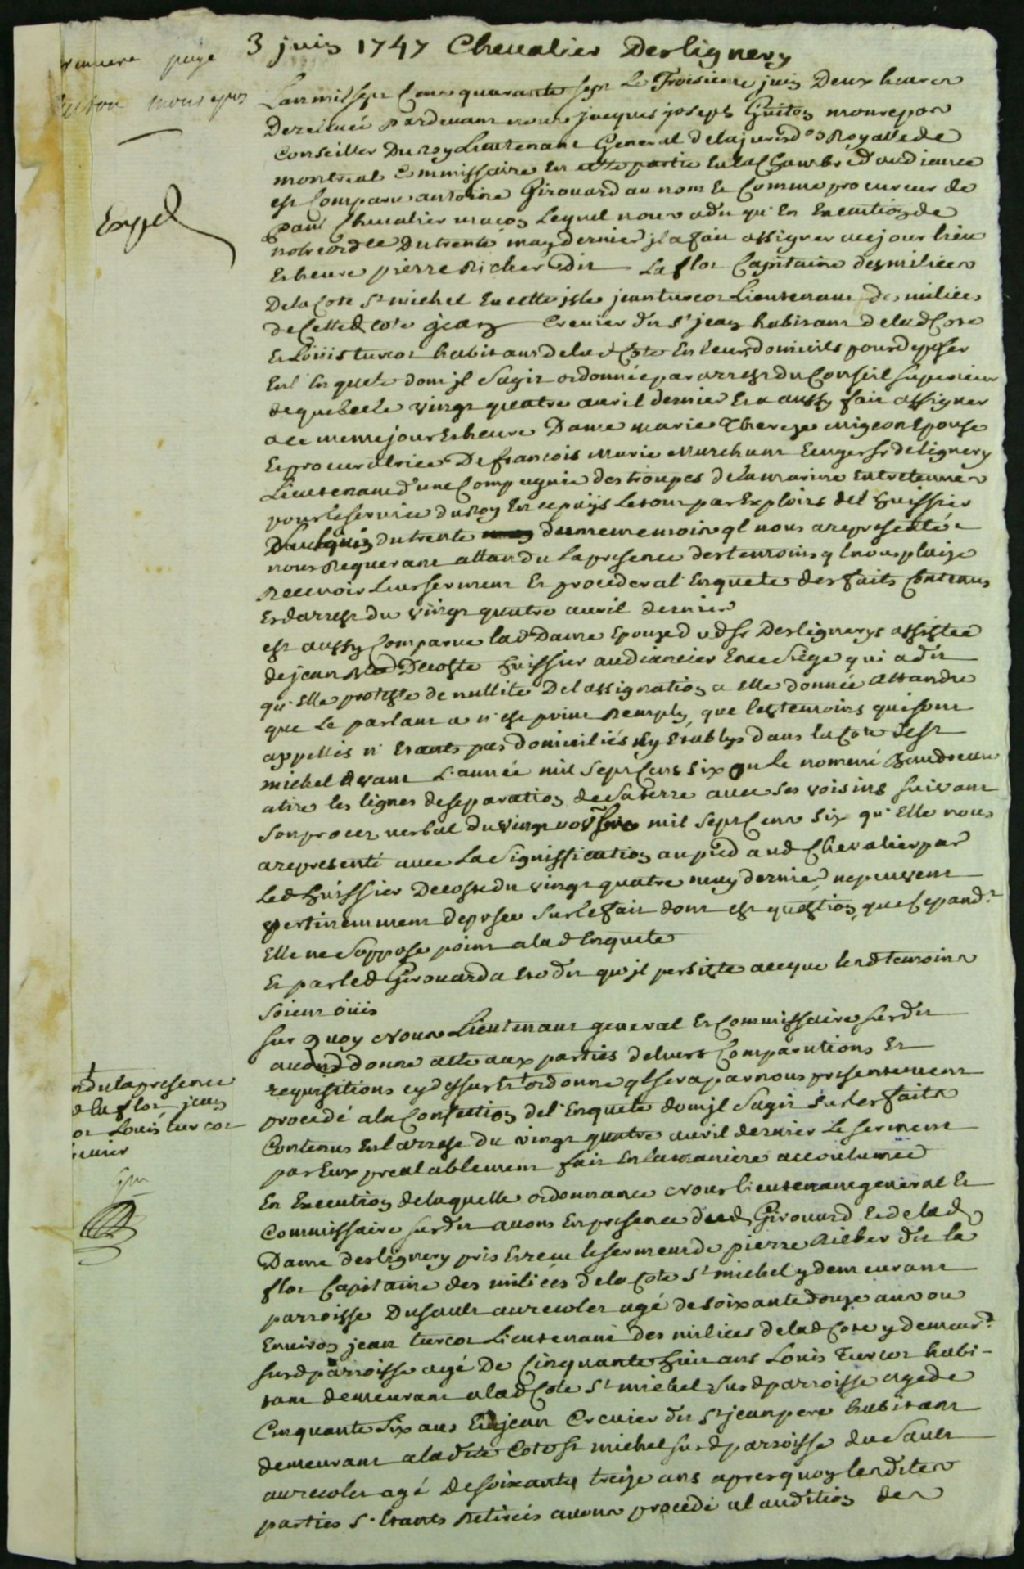 3 juin 1747 Chevalier Deslignery
page
Guiton monrepos
Lan mil sept Cens quarante sept Le Troisieme juin Deux heures
De relevée Pardevant nous jacques joseph Guiton monrepos
Conseiller Du Roy Lieutenant General delajurisd.on Royalle de
montreal Commissaire En cette partie En la Chambre d'audiance
est Comparu antoine Girouard au nom Et Comme procureur de
paul Chevalier maçon Lequel nous a dit qu'En Execution de
notre ord.ce du trente may dernier jl a fait assigner ace jour lieu
Et heure pierre Richer dit Laflor Capitaine des milices
De la Cote St michel En cette jsle jean turcot Lieutenant des milices
de Cette d. cote jean Crevier dit St jean habitant de lad Cote
Et Loüis turcot habitans de la d. Cote En leurs domicils pour deposer
En l'Enquete dont jl S'agit ordonnée par arrest du Conseil superieur
de quebec le vingt quatre avril dernier Et a aussy fait assigner
a ce meme jour Et heure Dame marie Thereze migeon Epouse
Et procuratrice De francois Marie Marchant Ecuyer Sr de Lignery
Lieutenant d'une Compagnie des troupes de la marine Entretenues
pour le service du Roy En ce païs Le tout par Exploits del huissier
Du trente du meme mois ql nous a representé
nous Requerant attandu La presence des temoins ql nous plaize
Recevoir Leur serment Et proceder a l'Enquete des faits Contenus
Esd arrest du vingt quatre avril dernier
est aussy Comparue lad Dame Epouze dud Sr Desligneris assistée
de jean Decoste huissier audiancier En ce Siege qui a dit
qu'Elle proteste de nullité De l assignation a Elle donnée attandu
que Le parlant a n'est point Remply, que les temoins qui sont
appellés n'Etants pas domiciliés ny Etablys dans la Cote St
michel avant L'année mil Sept Cens six ou Le nommé Baudreau
a tiré les lignes de separation de Sa terre avec Ses voisins suivant
Son procez verbal du vingt nov.bre mil Sept Cens Six qu'Elle nous
a representé avec La Signiffication au pied aud Chevalier par
Led huissier Decoste du vingt quatre may dernier ne peuvent
pertinemment deposer Sur le fait dont est question, que Cepand.t
Elle ne S'oppose point a lad Enquete
Et par led Girouard a Eté dit qu'jl persiste ace que les d temoins
Soient oüis
Sur Quoy Nous Lieutenant general Et Commissaire susdit
avons donné acte aux parties de leurs Comparutions Et
requisitions cy dessus Et ordonné ql sera par nous presentement
procedé a la Confection del'Enquete dont jl S'agit Sur les faits
Contenus En l'arrest du vingt quatre avril dernier Le serment
par Eux prealablement fait En la maniere accoutumée
En Execution de laquelle ordonnance Nous lieutenant general Et
Commissaire susdit avons En presence dud Girouard Et de lad
Dame deslignery pris Et receu le serment de pierre Richer dit la
flor Capitaine des milices de la Cote St michel y demeurant
parroisse Du Sault au recolet agé de soixante douze ans ou
Environ jean turcot Lieutenant des milices de lad Cote y demeur.t
susd parroisse agé De Cinquante huit ans Louis Turcot habi-
tant demeurant alad Cote St michel susd parroisse agé de
Cinquante Six ans Et jean Crevier dit St jean pere habitant
demeurant a ladite Cote St michel susd parroisse du Sault
au recolet agé de soixante treize ans apres quoy les dites
parties S'Etants Retirées avons procedé a l audition des
ndu la presence
de laflor jean
ot Louis turcot